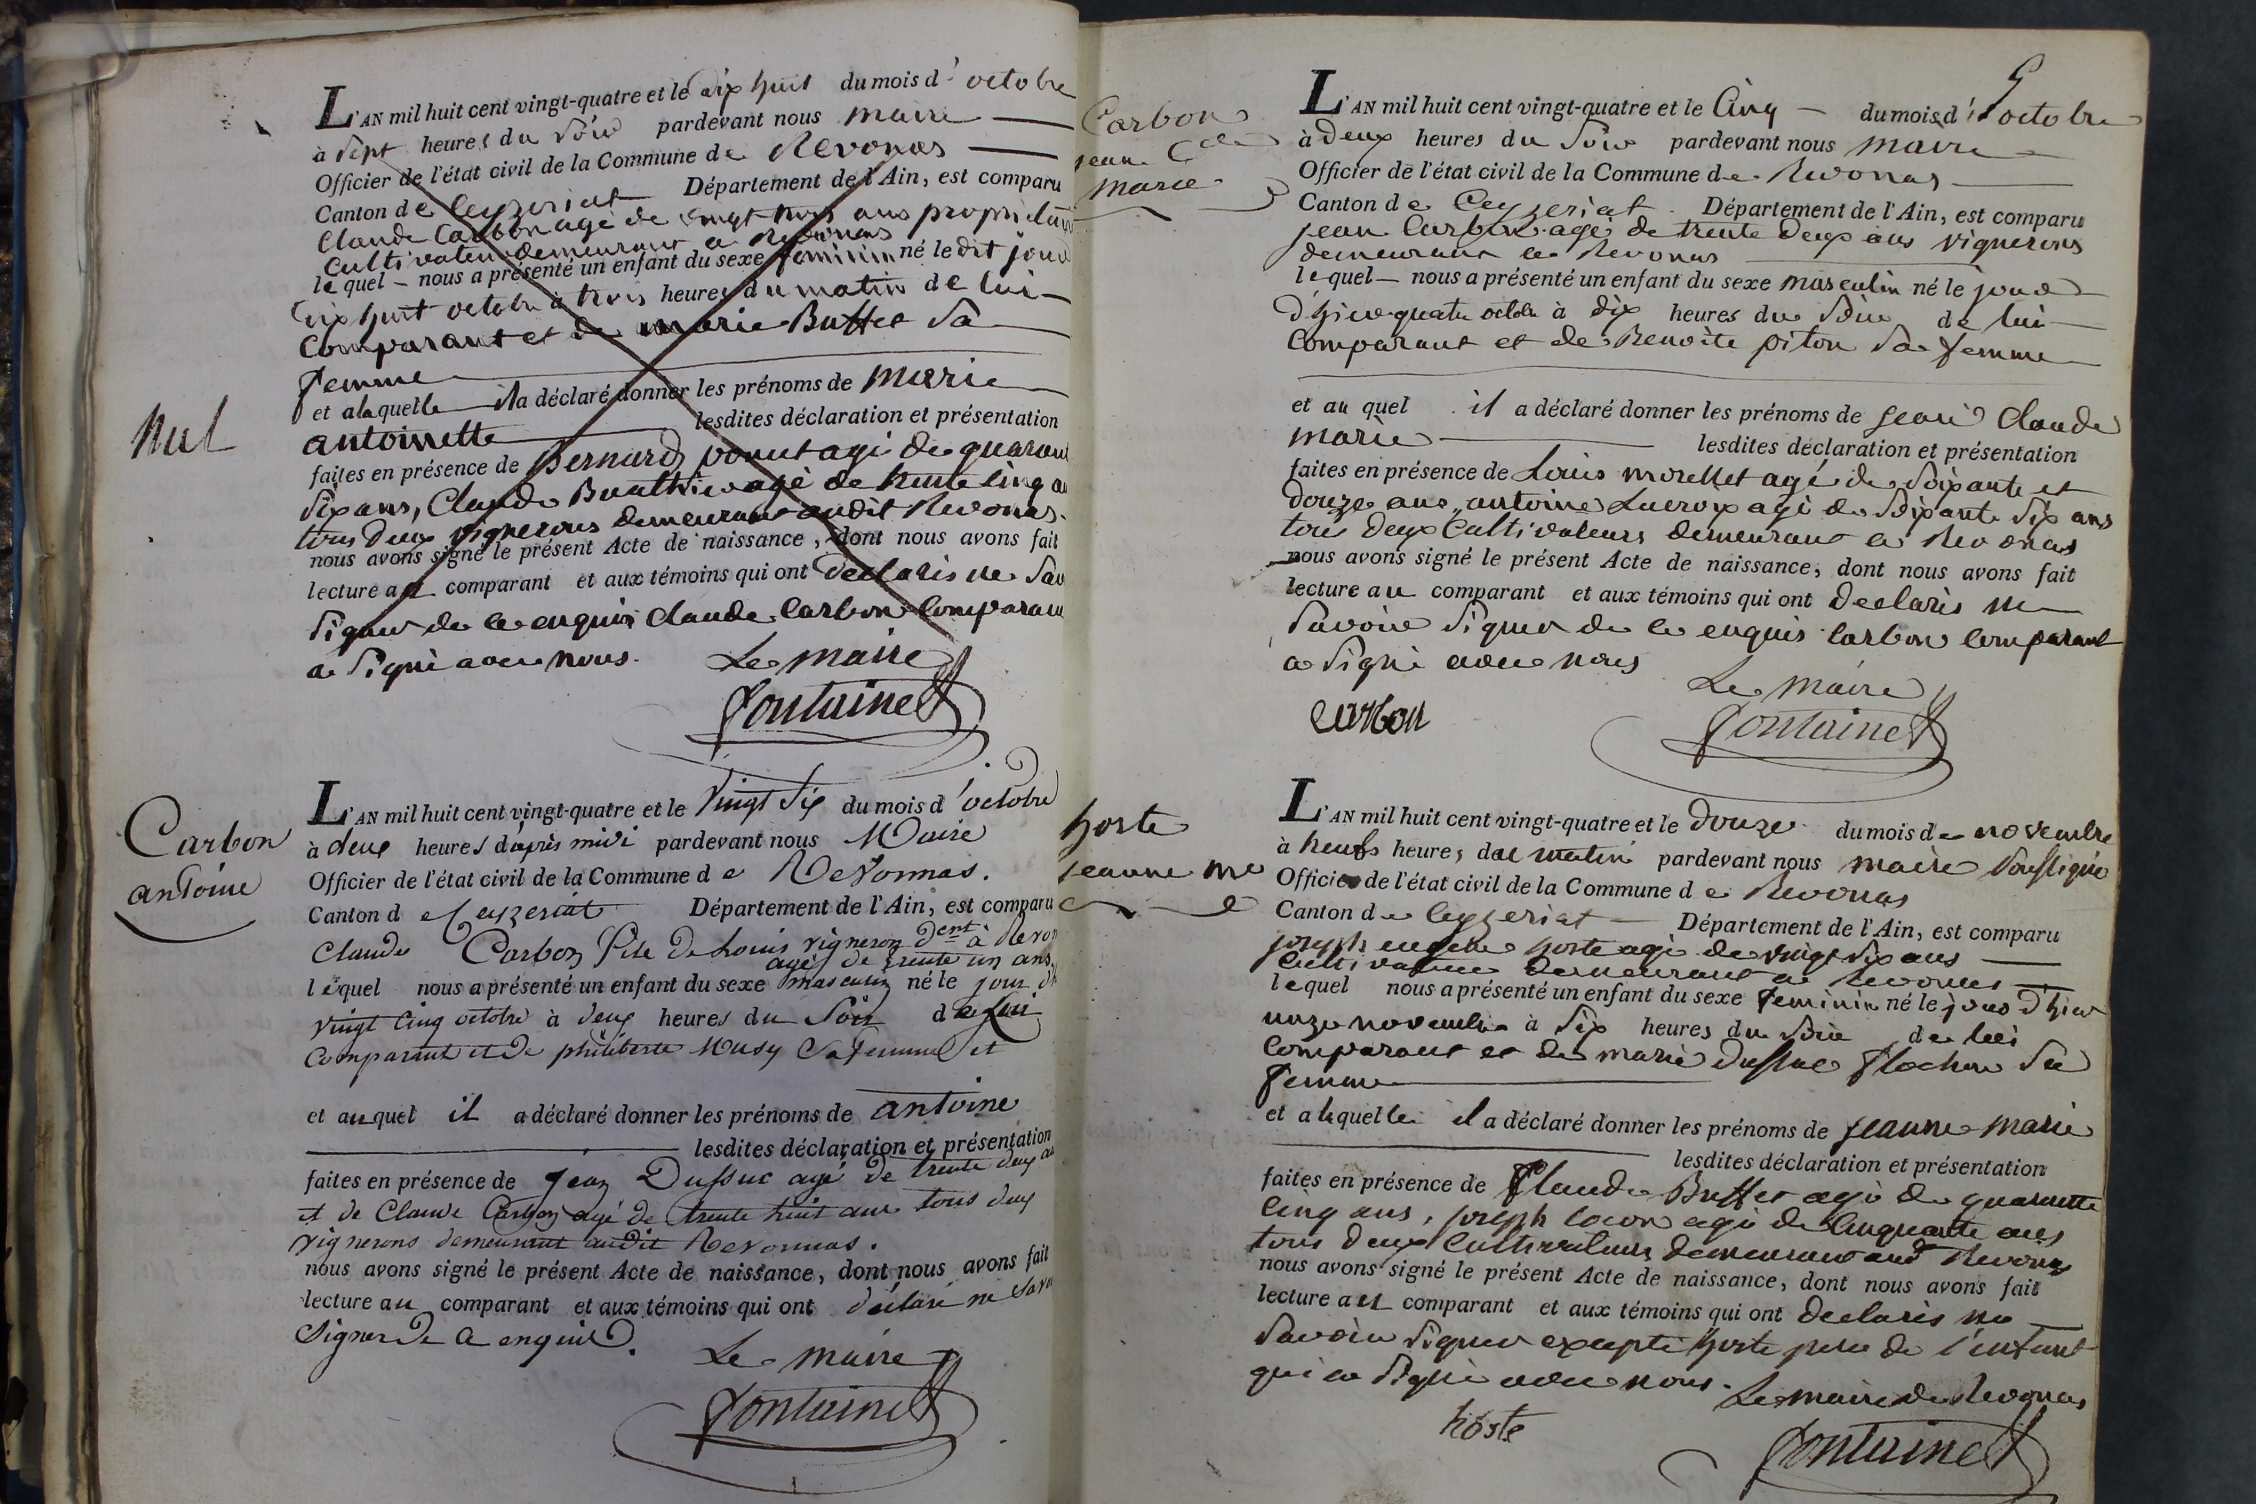 L'AN mil huit cent vingt-quatre et le dix huit du mois d'octobre
à Sept heures du Soir pardevant nous maire
Officier de l'état civil de la Commune de Revonas
Canton de Ceyzeriat Département de l'Ain, est comparu
Claude Carbon agé de vingt trois ans propriétaire
Cultivateur demeurant a Revonas
lequel nous a présenté un enfant du sexe feminin né le dit jour
Dix huit octobre à trois heures du matin de lui
Comparant et de marie Buffet Sa
femme
et alaquelle il a déclaré donner les prénoms de marie
Nul
antoinette lesdites déclaration et présentation
faites en présence de Bernard agé de quarante
Six ans, Claude agé de trente Cinq ans
tous deux vignerons demeurant audit Revonas.
nous avons signé le présent Acte de naissance, dont nous avons fait
lecture au comparant et aux témoins qui ont declarés ne Sav
Signer de ce enquis Claude Carbon Comparant
a Signé avec nous. Le maire
fontaine
Carbon
antoine
L'AN mil huit cent vingt-quatre et le vingt Six du mois d'octobre
à deux heures d'après midi pardevant nous Maire
Officier de l'état civil de la Commune de Revonnas.
Canton de Ceyzeriat Département de l'Ain, est comparu
Claude Carbon fils de Louis vigneron dent à Revon
agé de trente un ans
lequel nous a présenté un enfant du sexe masculin né le jour d'h
vingt Cinq octobre à deux heures du Soir de lui
Comparant et de philiberte Musy Sa femme et
et auquel il a déclaré donner les prénoms de antoine
lesdites déclaration et présentation
faites en présence de Jean Dufsuc agé de trente deux an
et de Claude Carbon agé de trente huit ans tous deux
vignerons demeurant audit Revonnas.
nous avons signé le présent Acte de naissance, dont nous avons fait
lecture au comparant et aux témoins qui ont déclaré ne Savo
Signer de ce enquis.
Le maire
fontaine
5
Carbon
jean Cde
marie
L'AN mil huit cent vingt-quatre et le Cinq du mois d'octobre
à deux heures du Soir pardevant nous maire
Officier de l'état civil de la Commune de Revonas
Canton de Ceyzeriat Département de l'Ain, est comparu
jean Carbon agé de trente deux ans vignerons
demeurant a Revonas
lequel nous a présenté un enfant du sexe masculin né le jour
d'hier quatre octobre à dix heures du Soir de lui
Comparant et de Benoite piton Sa femme
et au quel il a déclaré donner les prénoms de jean Claude
marie lesdites déclaration et présentation
faites en présence de Louis morellet agé de Soixante et
douze ans, antoine Lacroix agé de Soixante Six ans
tous deux Cultivateurs demeurant a Revonas
nous avons signé le présent Acte de naissance, dont nous avons fait
lecture au comparant et aux témoins qui ont declarés ne
Savoir Signer de ce enquis Carbon Comparant
a Signé avec nous
Le maire
Carbon
fontaine
hoste
jeanne me
L'AN mil huit cent vingt-quatre et le douze du mois de novembre
à neufs heures du matin pardevant nous maire Soussigné
Officier de l'état civil de la Commune de Revonas
Canton de Ceyzeriat Département de l'Ain, est comparu
joseph hoste agé de vingt Six ans
Cultivateur demeurant a Revonas
lequel nous a présenté un enfant du sexe feminin né le jour d'hier
onze novembre à Six heures du Soir de lui
Comparant et de marie flochon Sa
femme
et alaquelle il a déclaré donner les prénoms de jeanne marie
lesdites déclaration et présentation
faites en présence de Claude Buffet agé de quarante
Cinq ans, joseph cocon agé de Cinquante ans
tous deux Cultivateurs demeurant aud Revonas
nous avons signé le présent Acte de naissance, dont nous avons fait
lecture au comparant et aux témoins qui ont declarés ne
Savoir Signer excepté hoste pere de l'enfant
qui a Signé avec nous. Le maire de Revonas
hoste
fontaine